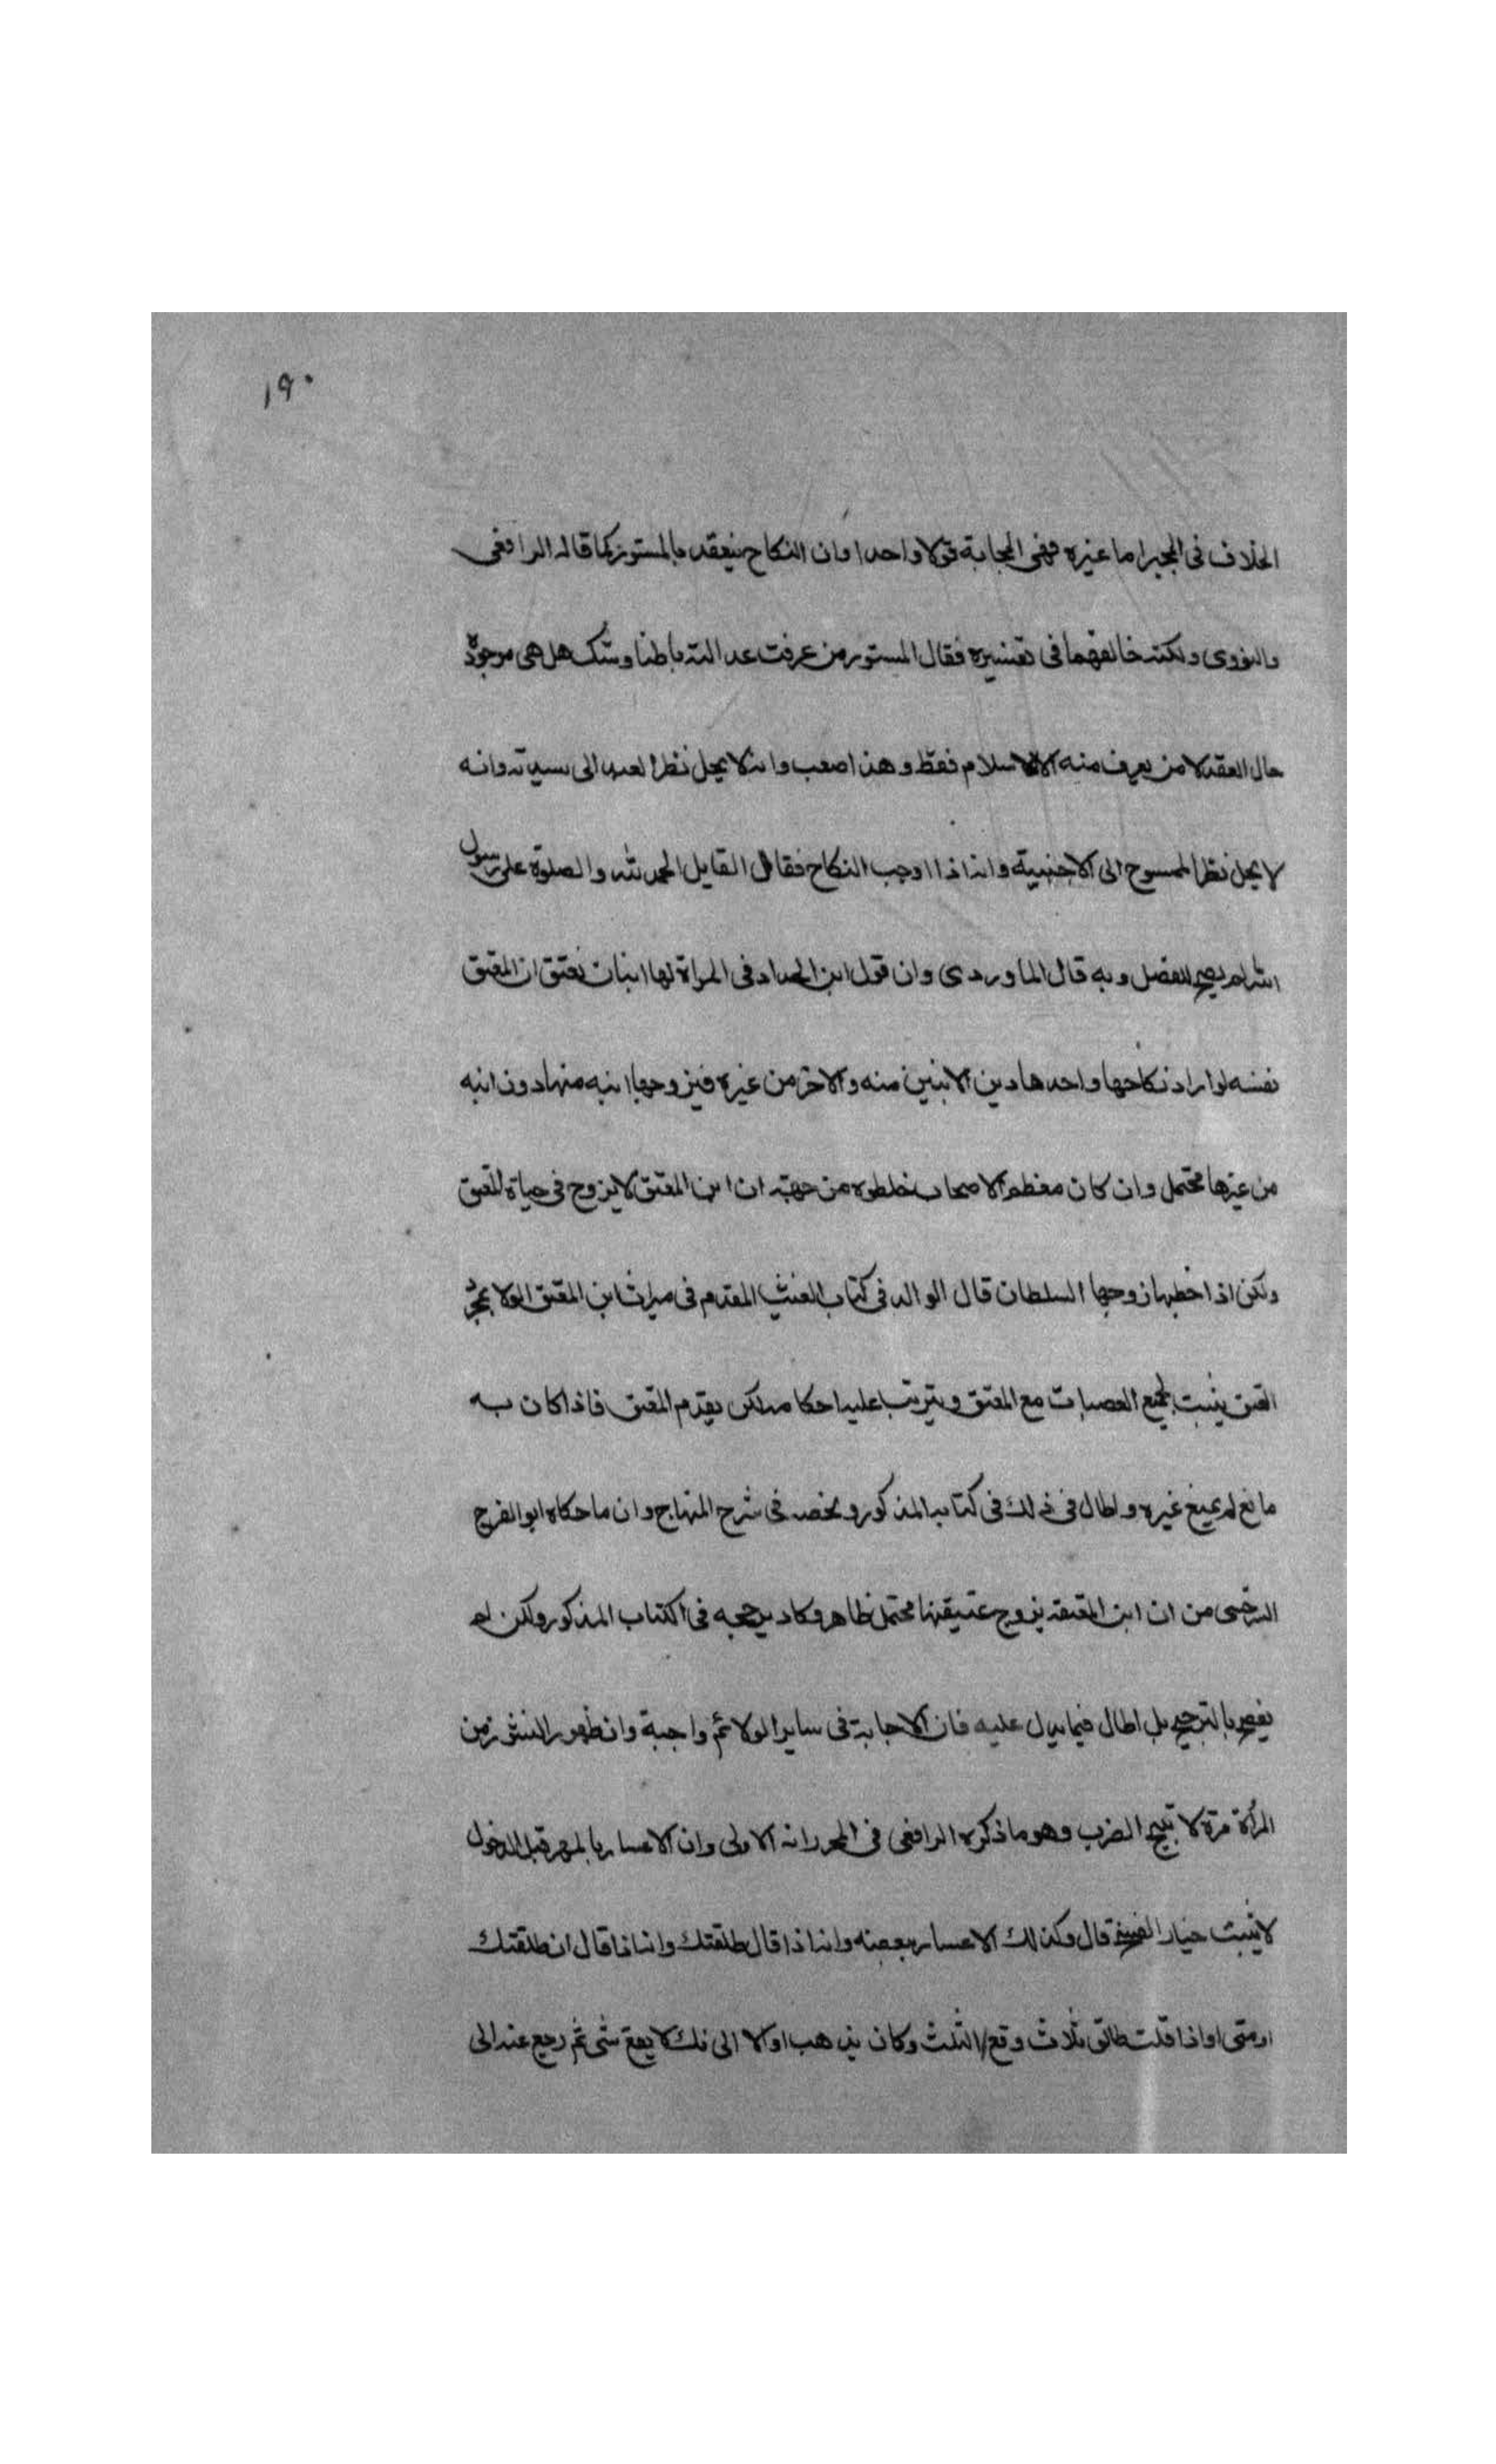 ١٩٠
الخلاف فى المجبر اما غيره فهى المجابة قولا واحدا وان النكاح ينعقد بالمستور كما قاله الرافعى
والنووى ولكنه خالفهما فى تفسيره فقال المستور من عرفت عدالته باطنا وشك هل هى موجودة
حال العقد لا من يعرف منه الا الاسلام فقط وهذا صعب وانه لا يحل نظر العبد الى سيدته وانه
لا يحل نظر الممسوح الى الاجنبية وانه اذا اوجب النكاح فقال القايل الحمد لله والصلوة على رسول
الله لم يصح للفصل وبه قال الماوردى وان قول ابن الحداد فى المراة لها ابنان تعتق ان المعتق
نفسه لوا راد نكاحها واحد هادين الابنين منه والاخر من غيره فيزوجها ابنه منها دون ابنه
من غيرها محتمل وان كان معظم الاصحاب غلطوه من جهة ان ابن المعتق لا يزوج فى حياة المعتق
ولكن اذا خطبها زوجها السلطان قال الوالد فى كتاب الغيث المغدق فى ميراث ابن المعتق الولا بمجرد
العتق يثبت لجميع العصبات مع المعتق ويترتب عليه احكامه لكن يقدم المعتق فاذا كان به
مانع لم يمنع غيره واطال فى ذلك فى كتابه المذكور ولخصه فى شرح المنهاج وان ما حكاه ابو الفرج
السرخسى من ان ابن المعتقة يزوج عتيقتها محتمل ظاهر وكاد يرجحه فى الكتاب المذكور ولكن لم
يفصح بالترجيح بل اطال فيما يدل عليه فان الاجابة فى ساير الولائم واجبة وان ظهور النشوز من
المرأة مرة لا تبيح الضرب وهو ما ذكره الرافعى فى المحرر انه الاولى وان الاعسار بالمهر قبل الدخول
لا يثبت خيار الفسخ قال وكذلك الاعسار ببعضه وانه اذا قال طلقتك وانه اذا قال ان طلقتك
او متى او اذا قلت طالق ثلاث وقع الثلث وكان يذهب اولا الى ذلك لا يقع شى ثم رجع عنه الى